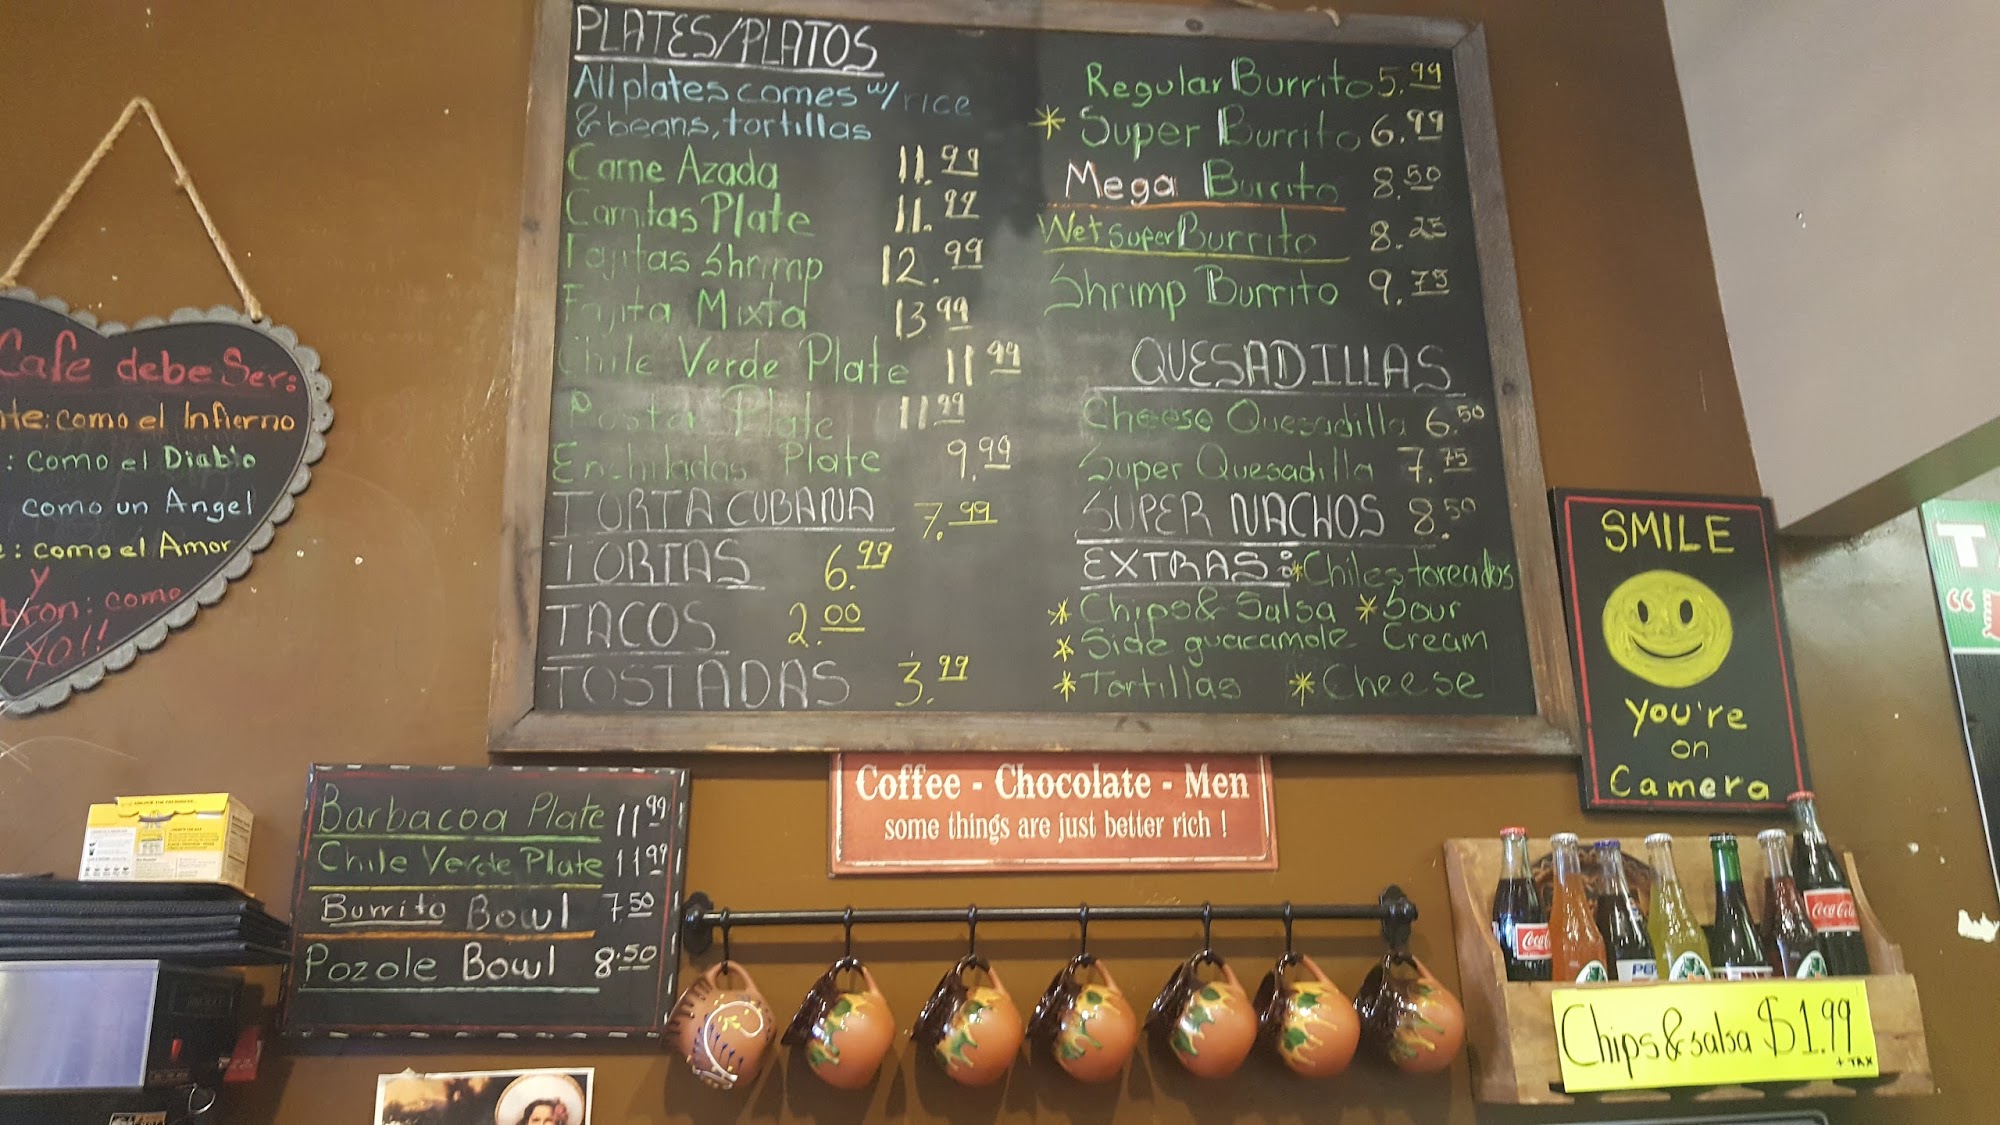 PLATES/PLATOS
All plates comes w/ rice
& beans, tortillas
Carne Azada 11.99
Carnitas Plate 11.99
Fajitas Shrimp 12.99
Fajita Mixta 13.99
Chile Verde Plate 11.99
Pastor Plate 11.99
Enchiladas Plate 9.99
TORTA CUBANA 7.99
TORTAS 6.99
TACOS 2.00
TOSTADAS 3.99
Regular Burrito 5.99
* Super Burrito 6.99
Mega Burrito 8.50
Wet super Burrito 8.25
Shrimp Burrito 9.75
QUESADILLAS
Cheese Quesadilla 6.50
Super Quesadilla 7.75
SUPER NACHOS 8.50
EXTRAS: * Chiles toreados
* Chips & Salsa * Sour
* Side guacamole Cream
* Tortillas * Cheese
Cafe debe Ser:
como el Infierno
: como el Diablo
como un Angel
: como el Amor
y
como
Yo!!
SMILE
You're
on
Camera
Barbacoa Plate 11.99
Chile Verde Plate 11.99
Burrito Bowl 7.50
Pozole Bowl 8.50
Coffee - Chocolate - Men
some things are just better rich !
Coca-Cola
Chips & salsa $1.99
+ TAX